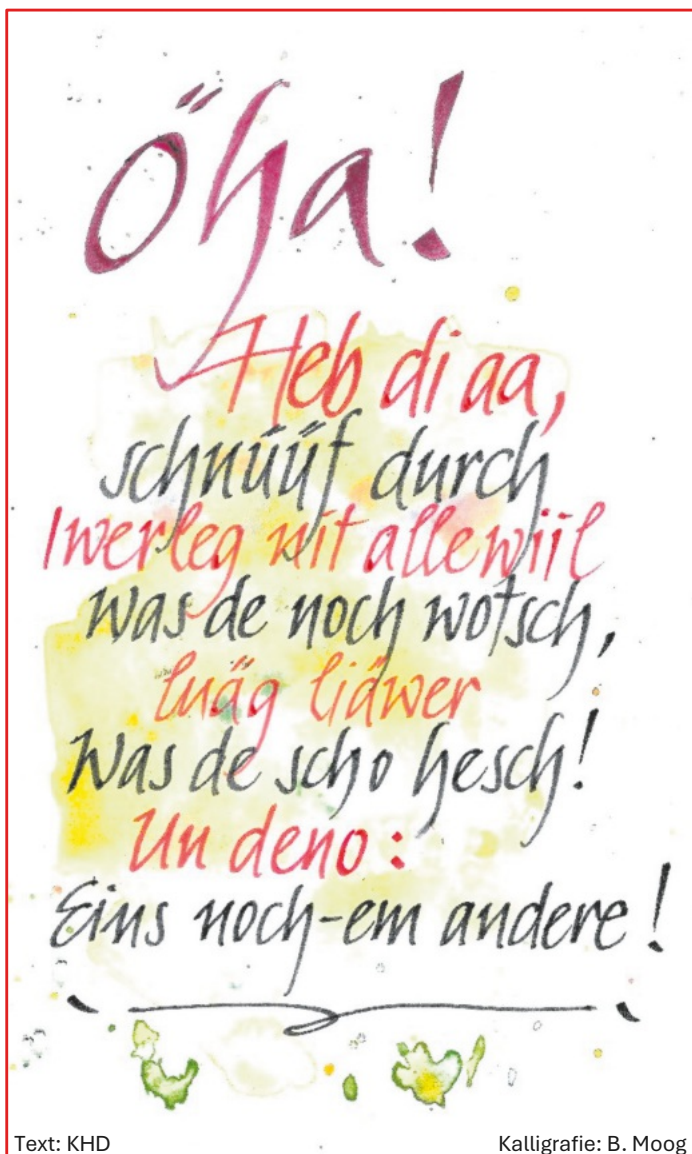 Öha!
Heb di aa,
schnüüf durch
Iwerleg nit allewiil
was de noch wotsch,
luäg liäwer
was de scho hesch!
Un deno:
Eins noch-em andere!
Text: KHD
Kalligrafie: B. Moog